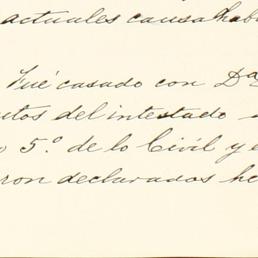 actuales causahabi
Fué casado con Dª
utos del intestado
o 5.º de lo Civil y e
ron declarados he